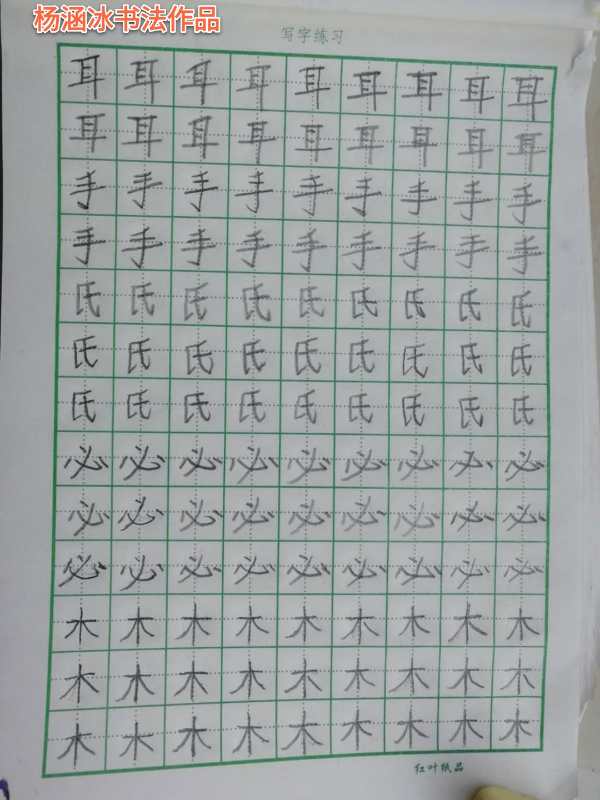 杨涵冰书法作品
写字练习
耳耳耳耳耳耳耳耳耳
耳耳耳耳耳耳耳耳耳
手手手手手手手手手
手手手手手手手手手
氏氏氏氏氏氏氏氏氏
氏氏氏氏氏氏氏氏氏
氏氏氏氏氏氏氏氏氏
必必必必必必必必必
必必必必必必必必必
必必必必必必必必必
木木木木木木木木木
木木木木木木木木木
木木木木木木木木木
红叶纸品